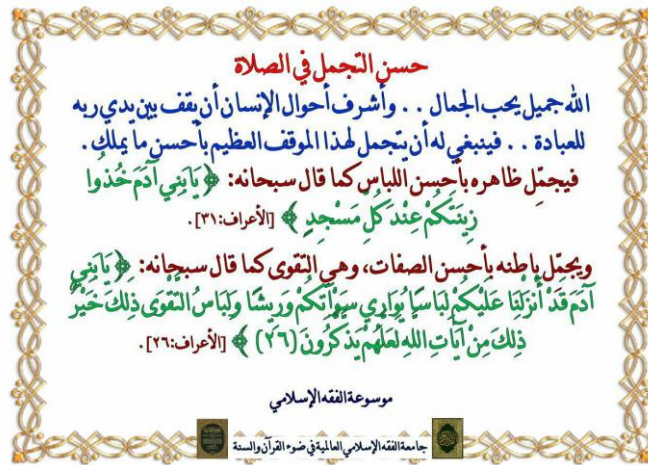 حسن التجمل في الصلاة
الله جميل يحب الجمال . . وأشرف أحوال الإنسان أن يقف بين يدي ربه
للعبادة . . فينبغي له أن يتجمل لهذا الموقف العظيم بأحسن ما يملك .
فيجمّل ظاهره بأحسن اللباس كما قال سبحانه: ﴿ يَابَنِي آدَمَ خُذُوا
زِينَتَكُمْ عِنْدَ كُلِّ مَسْجِدٍ ﴾ [الأعراف:٣١] .
ويجمّل باطنه بأحسن الصفات، وهي التقوى كما قال سبحانه: ﴿ يَابَنِي
آدَمَ قَدْ أَنْزَلْنَا عَلَيْكُمْ لِبَاسًا يُوَارِي سَوْآتِكُمْ وَرِيشًا وَلِبَاسُ التَّقْوَى ذَلِكَ خَيْرٌ
ذَلِكَ مِنْ آيَاتِ اللهِ لَعَلَّهُمْ يَذَّكَّرُونَ (٢٦) ﴾ [الأعراف:٢٦] .
موسوعة الفقه الإسلامي
جامعة الفقه الإسلامي العالمية في ضوء القرآن والسنة